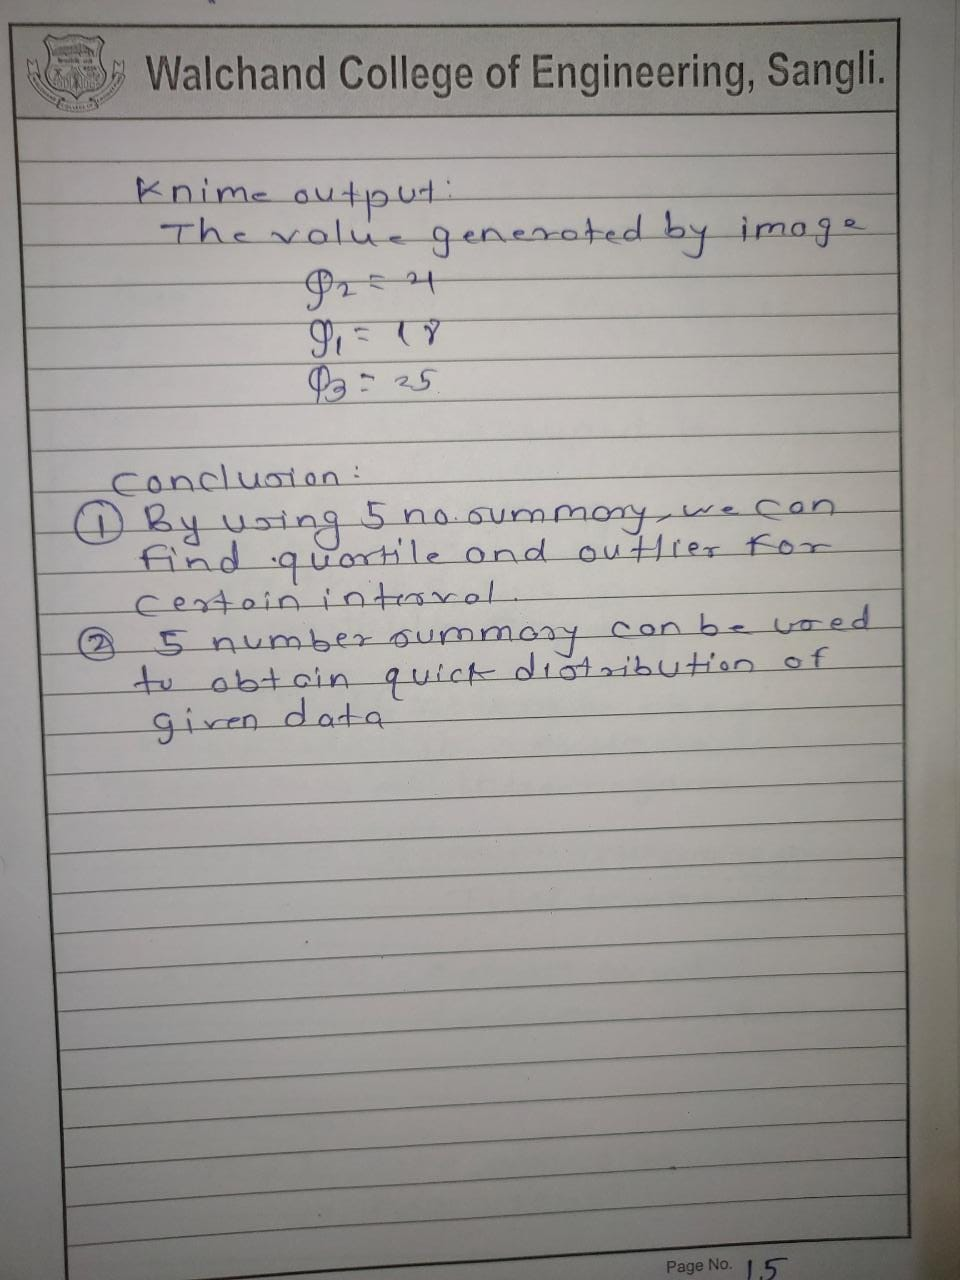 Walchand College of Engineering, Sangli.
Knime output:
The value generated by image
Q2 = 21
Q1 = 18
Q3 = 25
Conclusion:
① By using 5 no. summary, we can
find quartile and outlier for
certain interval.
② 5 number summary can be used
to obtain quick distribution of
given data
Page No. 15